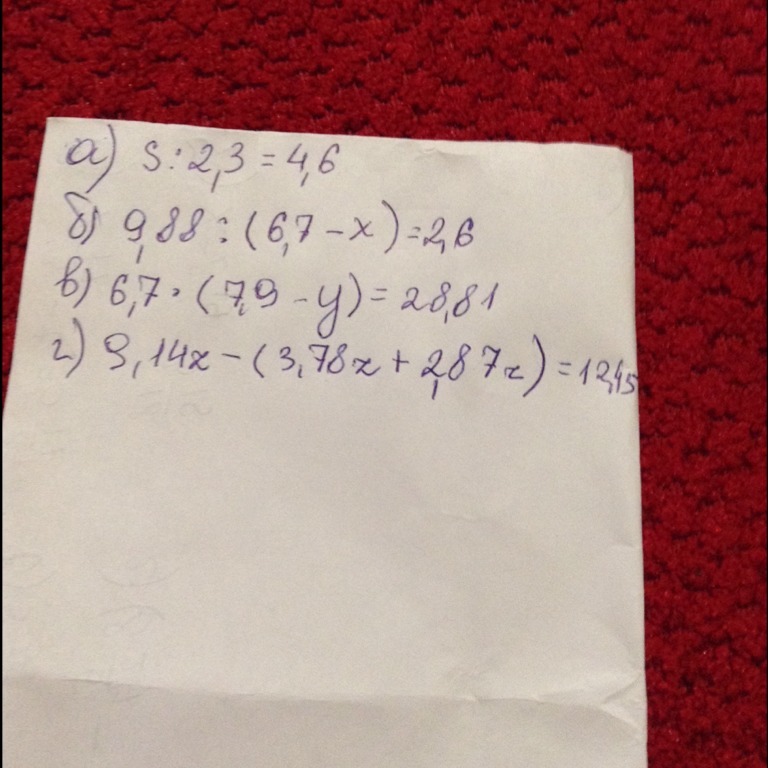 а) s : 2,3 = 4,6
б) 9,88 : (6,7 - x) = 2,6
в) 6,7 · (7,9 - y) = 28,81
г) 9,14z - (3,78z + 2,87z) = 12,45